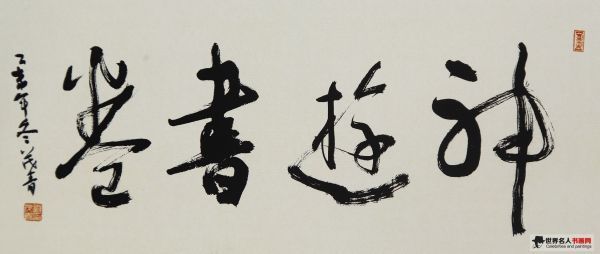 神遊書卷
乙亥年冬茂青
世界名人书画网
Celebrities and paintings